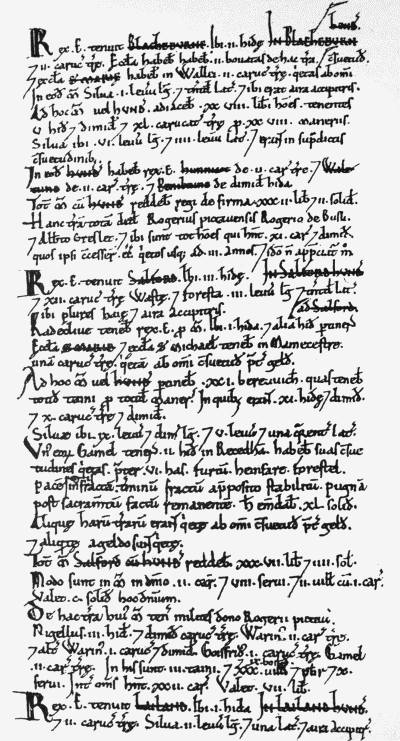 hvnd'.
Rex. E. tenuit BLACHEBVRNE. Ibi .ii. hidę IN BLACHEBVRN
7 ii. caruc' t'rę. Ecclā habeb' .ii. bouatas de hac t'ra. 7 c̄suetud.
7 eccla S' MARIE habeb' in Wallei .ii. caruc' t'rę. quietā ab om̄i
In eod m̄ Silua .i. leuū lḡ. 7 tn̄tđ lat'. 7 ibi erat aira accipitris.
Ad hoc m̄ uel HVND' adiaceb' xx.viii. lib̄i hōes. tenentes
v. hid' 7 dimid'. 7 xl. carucat' t'rę p. xx.viii. maneriis.
Silua ibi .vi. leuū lḡ. 7 iiii. leuū lat'. 7 erant in sup̄dictis
c̄suetudinib;
In eod HVND' habeb' rex .E. hunnicot de .ii. car' t'rę. 7 Wale
tune de .ii. car' t'rę. 7 Peniltune de dimid' hida.
Tot' m̄ cū HVND' reddeb' regi de firma .xxx.ii. lib' 7 ii. solid'.
Hanc t'rā totā dedit Rogerius pictauensis Rogerio de Busli.
7 Alb'to Greslet. 7 ibi sunt tot hōes qui hn̄t .xi. car' 7 dimid'.
quos ipsi c̄cesser' ēē quietos usq; ad .iii. annos. 7 ido n̄ app̄ciant' m̊
Rex .E. tenuit SALFORD. Ibi .iii. hidę. IN SALFORD HVND'.
7 xii. caruc' t'rę Wastę. 7 foresta .iii. leuū lḡ. 7 tn̄tđ lat'.
7 ibi plures haię. 7 aira accipitris. ad Salford.
Radecliue teneb' rex .E. p m̄. Ibi .i. hida. 7 alia hid' p̄tineŋ
Ecclā S' MARIE 7 eccla S' Michael' teneb' in Mamecestre.
unā caruc' t'rę. quietā ab om̄i c̄suetud' p̄ter geld'.
Ad hoc m̄ uel HVND' p̄tineb' .xx.i. bereuuich. quas teneb'
totid' taini p totid' maner'. In quib; erant .xi. hidę 7 dimid'.
7 x. caruc' t'rę 7 dimid'.
Siluæ ibi .ix. leuū 7 dim' lḡ. 7 v. leuū 7 una quarent' lat'.
Vn' eoꝝ Gamel teneŋ .ii. hid' in Recedhā. habeb' suas c̄sue
tudines quietas. p̄ter .vi. has. furtū. heinfare. forestel.
pacē infractā. t'minū fractū a p̄posito stabilitū. pugnā
post sacram̄tū factū remanente. H̄ em̄dab' .xl. solid'.
Aliquę harū t'rarū eraŋ quietę ab om̄i c̄suetud' p̄ter geld'.
7 aliquę a geldo sunt quietę.
Tot' m̄ Salford cū HVND' reddeb' .xxx.vii. lib' 7 iiii. sol'.
Modo sunt in m̄ in dn̄io .ii. car'. 7 viii. serui. 7 ii. uill' cū .i. car'.
Valet .c. solid' hoc dn̄ium.
De hac t'ra hui' m̄ ten' milites dono Rogerii pictau'.
Nigellus .iii. hid' 7 dimid' caruc' t'rę. Warin' .ii. car' t'rę.
7 alt' Warin' .i. caruc' 7 dimid'. Goisfrid' .i. caruc' t'rę. Gamel
.ii. car' t'rę. In his sunt .iii. taini. 7 xxx. uill'i 7 ix. bord' 7 pbr' 7 x.
serui. Int' om̄s hn̄t .xxii. car'. Valet .vii. lib'.
Rex .E. tenuit LAILAND. Ibi .i. hida IN LAILAND HVND'.
7 ii. caruc' t'rę. Silua .ii. leuū lḡ. 7 una lat'. 7 aira accipit̄r.